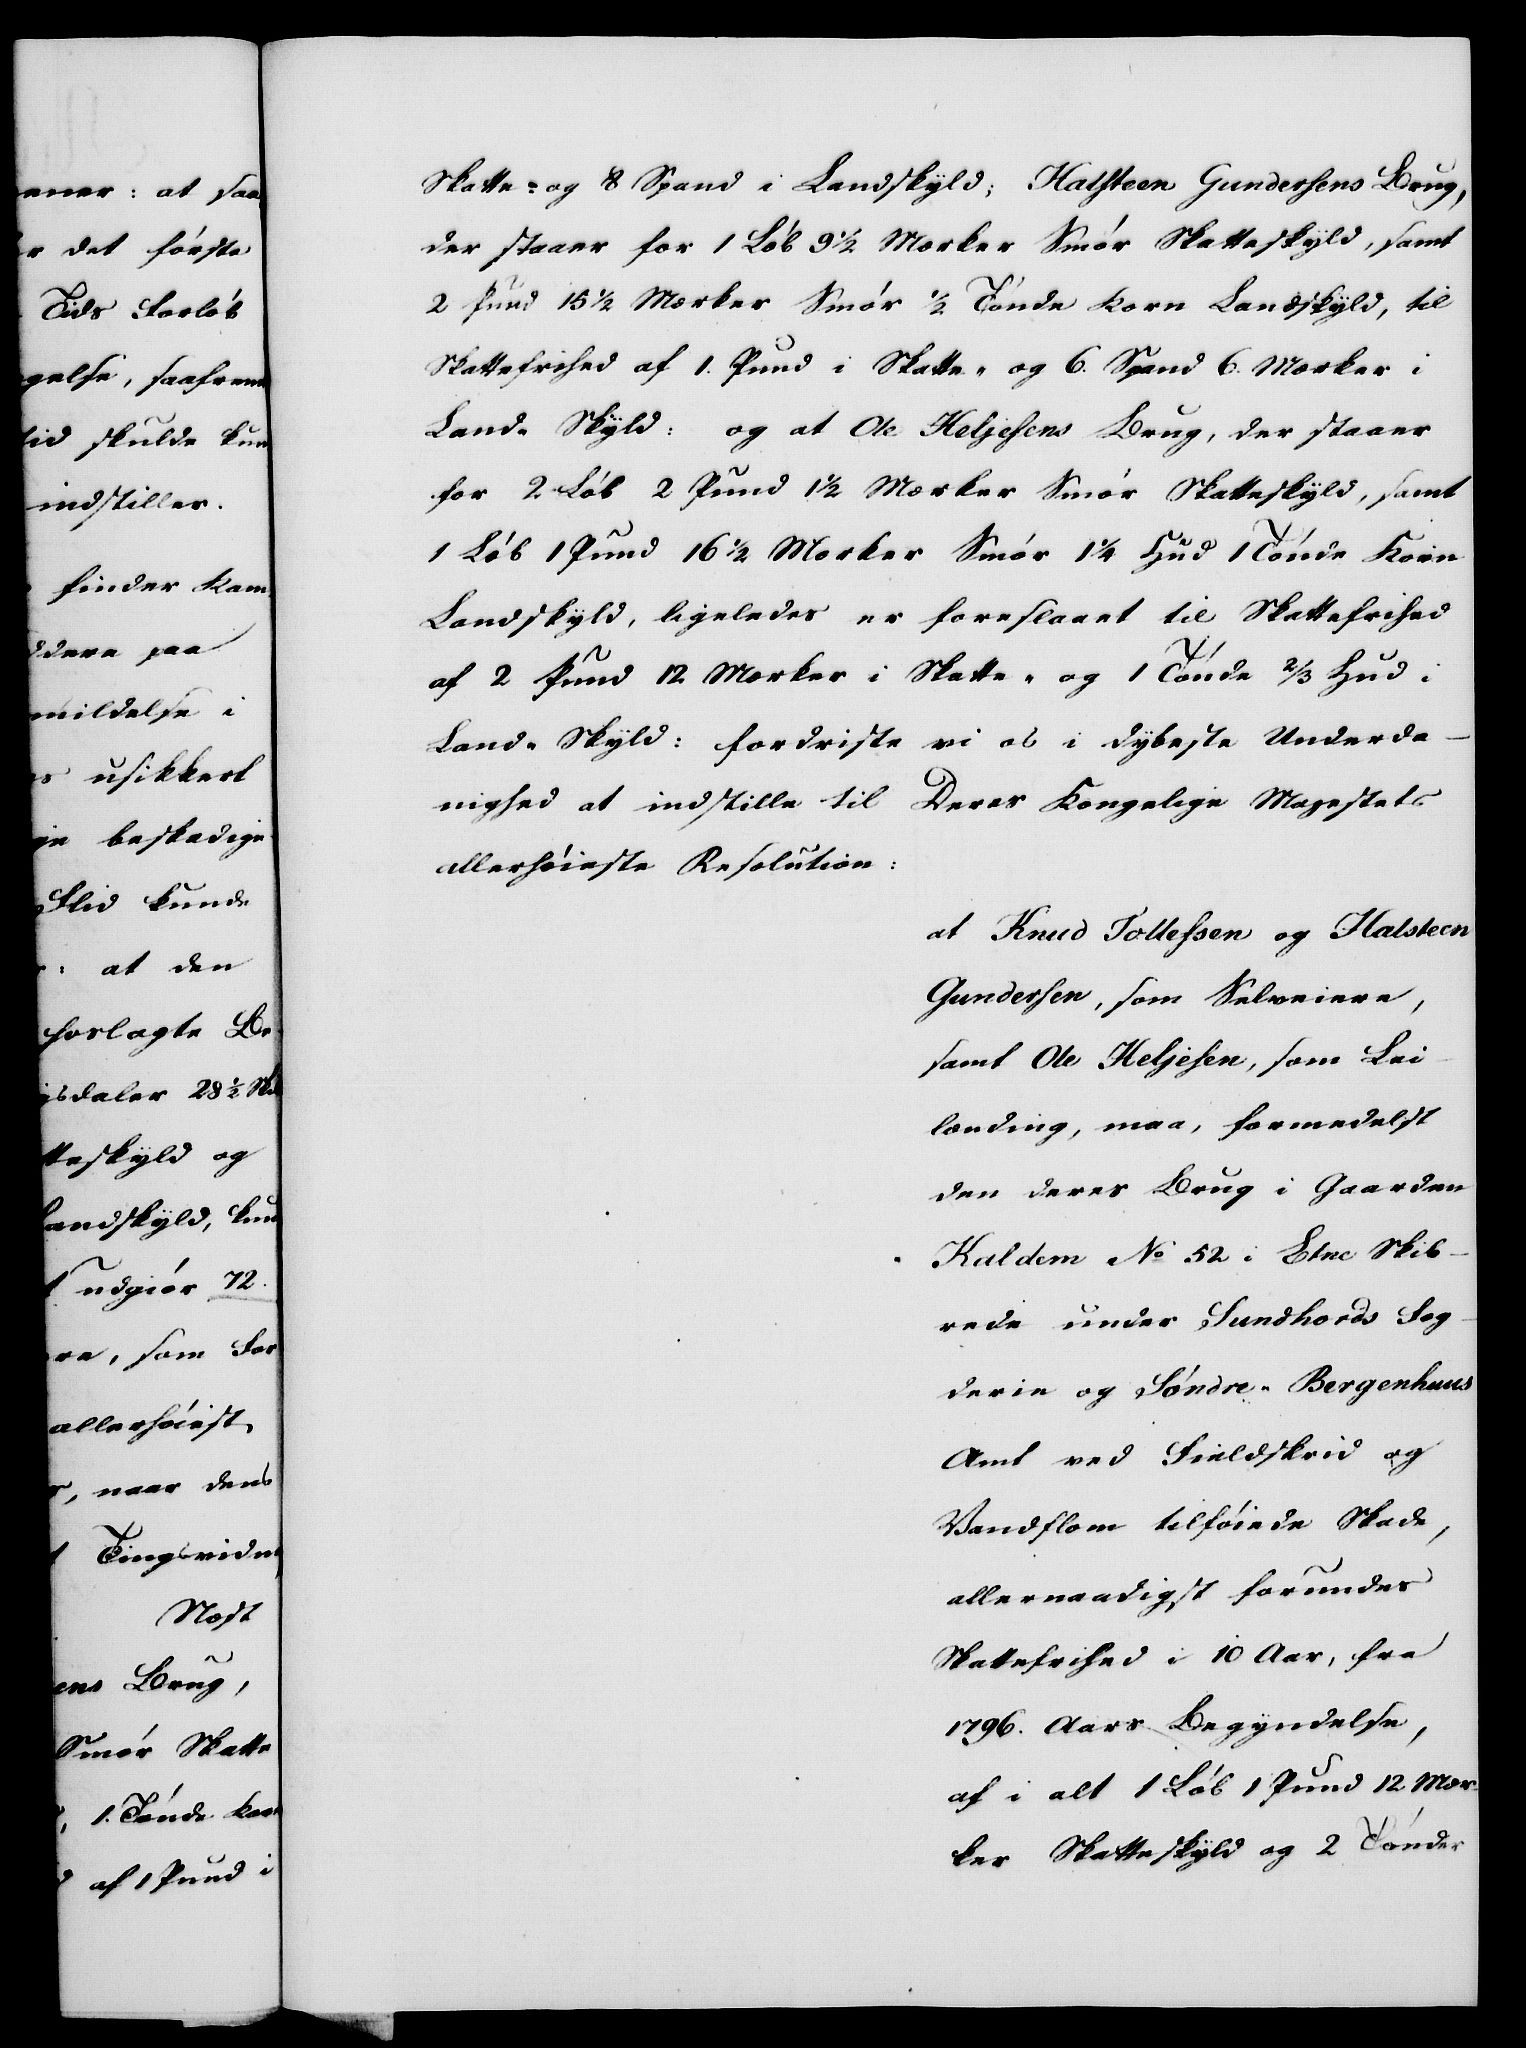 ener: at saa
r det første
Tids Forløb
gelse, saafremt
tid skulde kun
indstiller.
finder Kam
ddere paa
mildelse i
usikkert
ge beskadige
Flid kunde
: at den
forlagte Be
gsdaler 28 1/2 Sk
tteskyld og
Landskyld, kun
udgiør 72.
re, som For
allerhøiest,
, naar dens
Tingsvidne
Næst
ens Brug,
Smør Skatte
, 1. Tønde Korn
af 1 Pund i
Skatte- og 8 Spand i Landskyld; Halsteen Gundersens Brug,
der staaer for 1 Løb 9 1/2 Mærker Smør Skatteskyld, samt
2 Pund 15 1/2 Mærker Smør 1/2 Tønde Korn Landskyld, til
Skattefrihed af 1. Pund i Skatte- og 6. Spand 6. Mærker i
Land- Skyld: og at Ole Heljesens Brug, der staaer
for 2 Løb 2 Pund 1 1/2 Mærker Smør Skatteskyld, samt
1 Løb 1 Pund 16 1/2 Mærker Smør 1 1/4 Hud 1 Tønde Korn
Landskyld, ligeledes er foreslaaet til Skattefrihed
af 2 Pund 12 Mærker i Skatte- og 1 Tønde 2/3 Hud i
Land- Skyld: fordriste vi os i dybeste Underda-
nighed at indstille til Deres Kongelige Majestets
allerhøieste Resolution:
at Knud Tollefssen og Halsteen
Gundersen, som Selveiere,
samt Ole Heljesen, som Lei-
lænding, maa, formedelst
den deres Brug i Gaarden
Kaldem No 52 i Etne Skib-
rede under Sundhords Fog-
derie og Søndre- Bergenhuus
Amt ved Fieldskrid og
Vandflom tilføiede Skade,
allernaadigst forundes
Skattefrihed i 10 Aar, fra
1796. Aars Begyndelse,
af i alt 1 Løb 1 Pund 12 Mær-
ker Skatteskyld og 2 Tønder